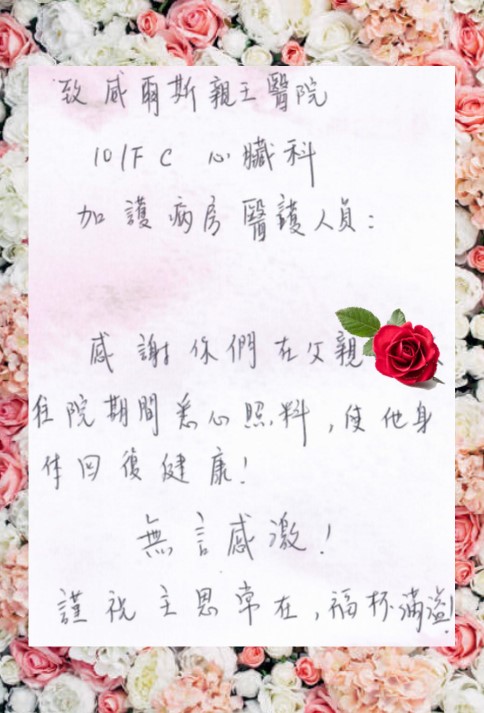 致威爾斯親王醫院
10/F C 心臟科
加護病房醫護人員:
感謝你們在父親
住院期間悉心照料,使他身
体回復健康!
無言感激!
謹祝主恩常在,福杯滿溢!